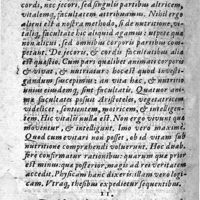 cordis, nec jecori, sed singulis partibus altricem,
vitalemq; facultatem attribuamus. Nihil ergo
alieni est à nostra methodo, si de nutritione, vi-
talíq; facultate hic aliquid agamus: utpote quæ
non alicui, sed omnibus corporis partibus com-
petant. De jecoris, & cordis facultatibus alia
est quæstio. Cum pars quælibet animati corporis
& vivat, & nutriatur: hoc est quod investi-
gandum suscepimus: an vita hæc, & nutritio
unius eiusdemq; animæ sint, facultatis. Quatuor ani-
mæ facultates posuit Aristoteles, vegetatricem
videlicet, sentientem, motricem, & intelli-
gentem. Hic vitalis nulla est. Non ergo vivunt quæ
moventur, & intelligunt. Imo vero maxime.
Quod cum evitari non posset, ob id vitam sub
nutritione comprehendi voluerunt. Hoc duab.
fere confirmatur rationibus: quarum quæ prior
est minus, quæ posterior, magis ad rei veritatem
accedit. Physicam hanc dixeris: illam vero logi-
cam. Utraq; thesibus expedietur sequentibus.
II.